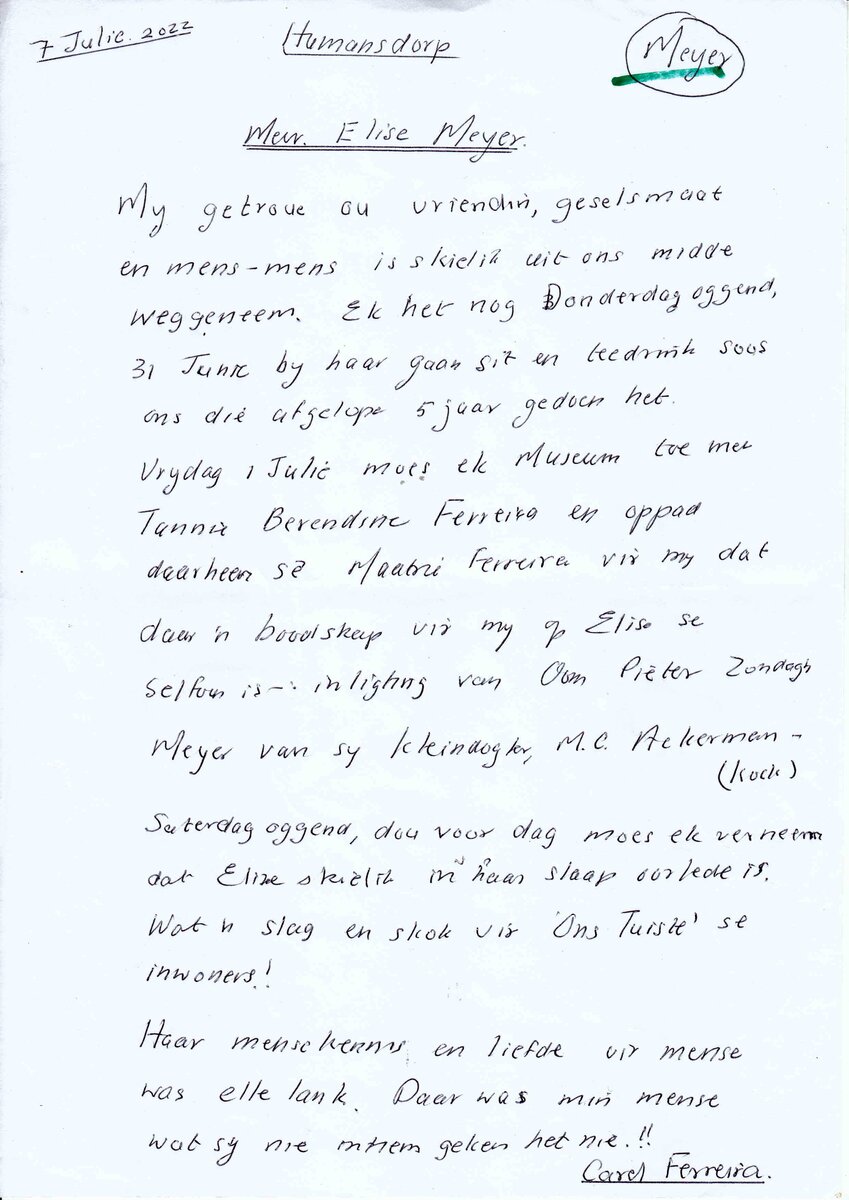 7 Julie. 2022
Humansdorp
Meyer
Mevr. Elise Meyer.
My getroue ou vriendin, geselsmaat
en mens-mens is skielik uit ons midde
weggeneem. Ek het nog Donderdagoggend,
31 Junie by haar gaan sit en teedrink soos
ons die afgelope 5 jaar gedoen het.
Vrydag 1 Julie moes ek Museum toe met
Tannie Berendine Ferreira en oppad
daarheen sê Ferreira vir my dat
daar 'n boodskap vir my op Elise se
selfoon is - inligting van Oom Piëter Zondagh
Meyer van sy kleindogter, M.C. Ackerman -
(Kock)
Saterdagoggend, dou voor dag moes ek verneem
dat Elize skielik in haar slaap oorlede is.
Wat 'n slag en skok vir 'Ons Tuiste' se
inwoners!
Haar mensekennis en liefde vir mense
was elle lank. Daar was min mense
wat sy nie intiem geken het nie.!!
Carel Ferreira.